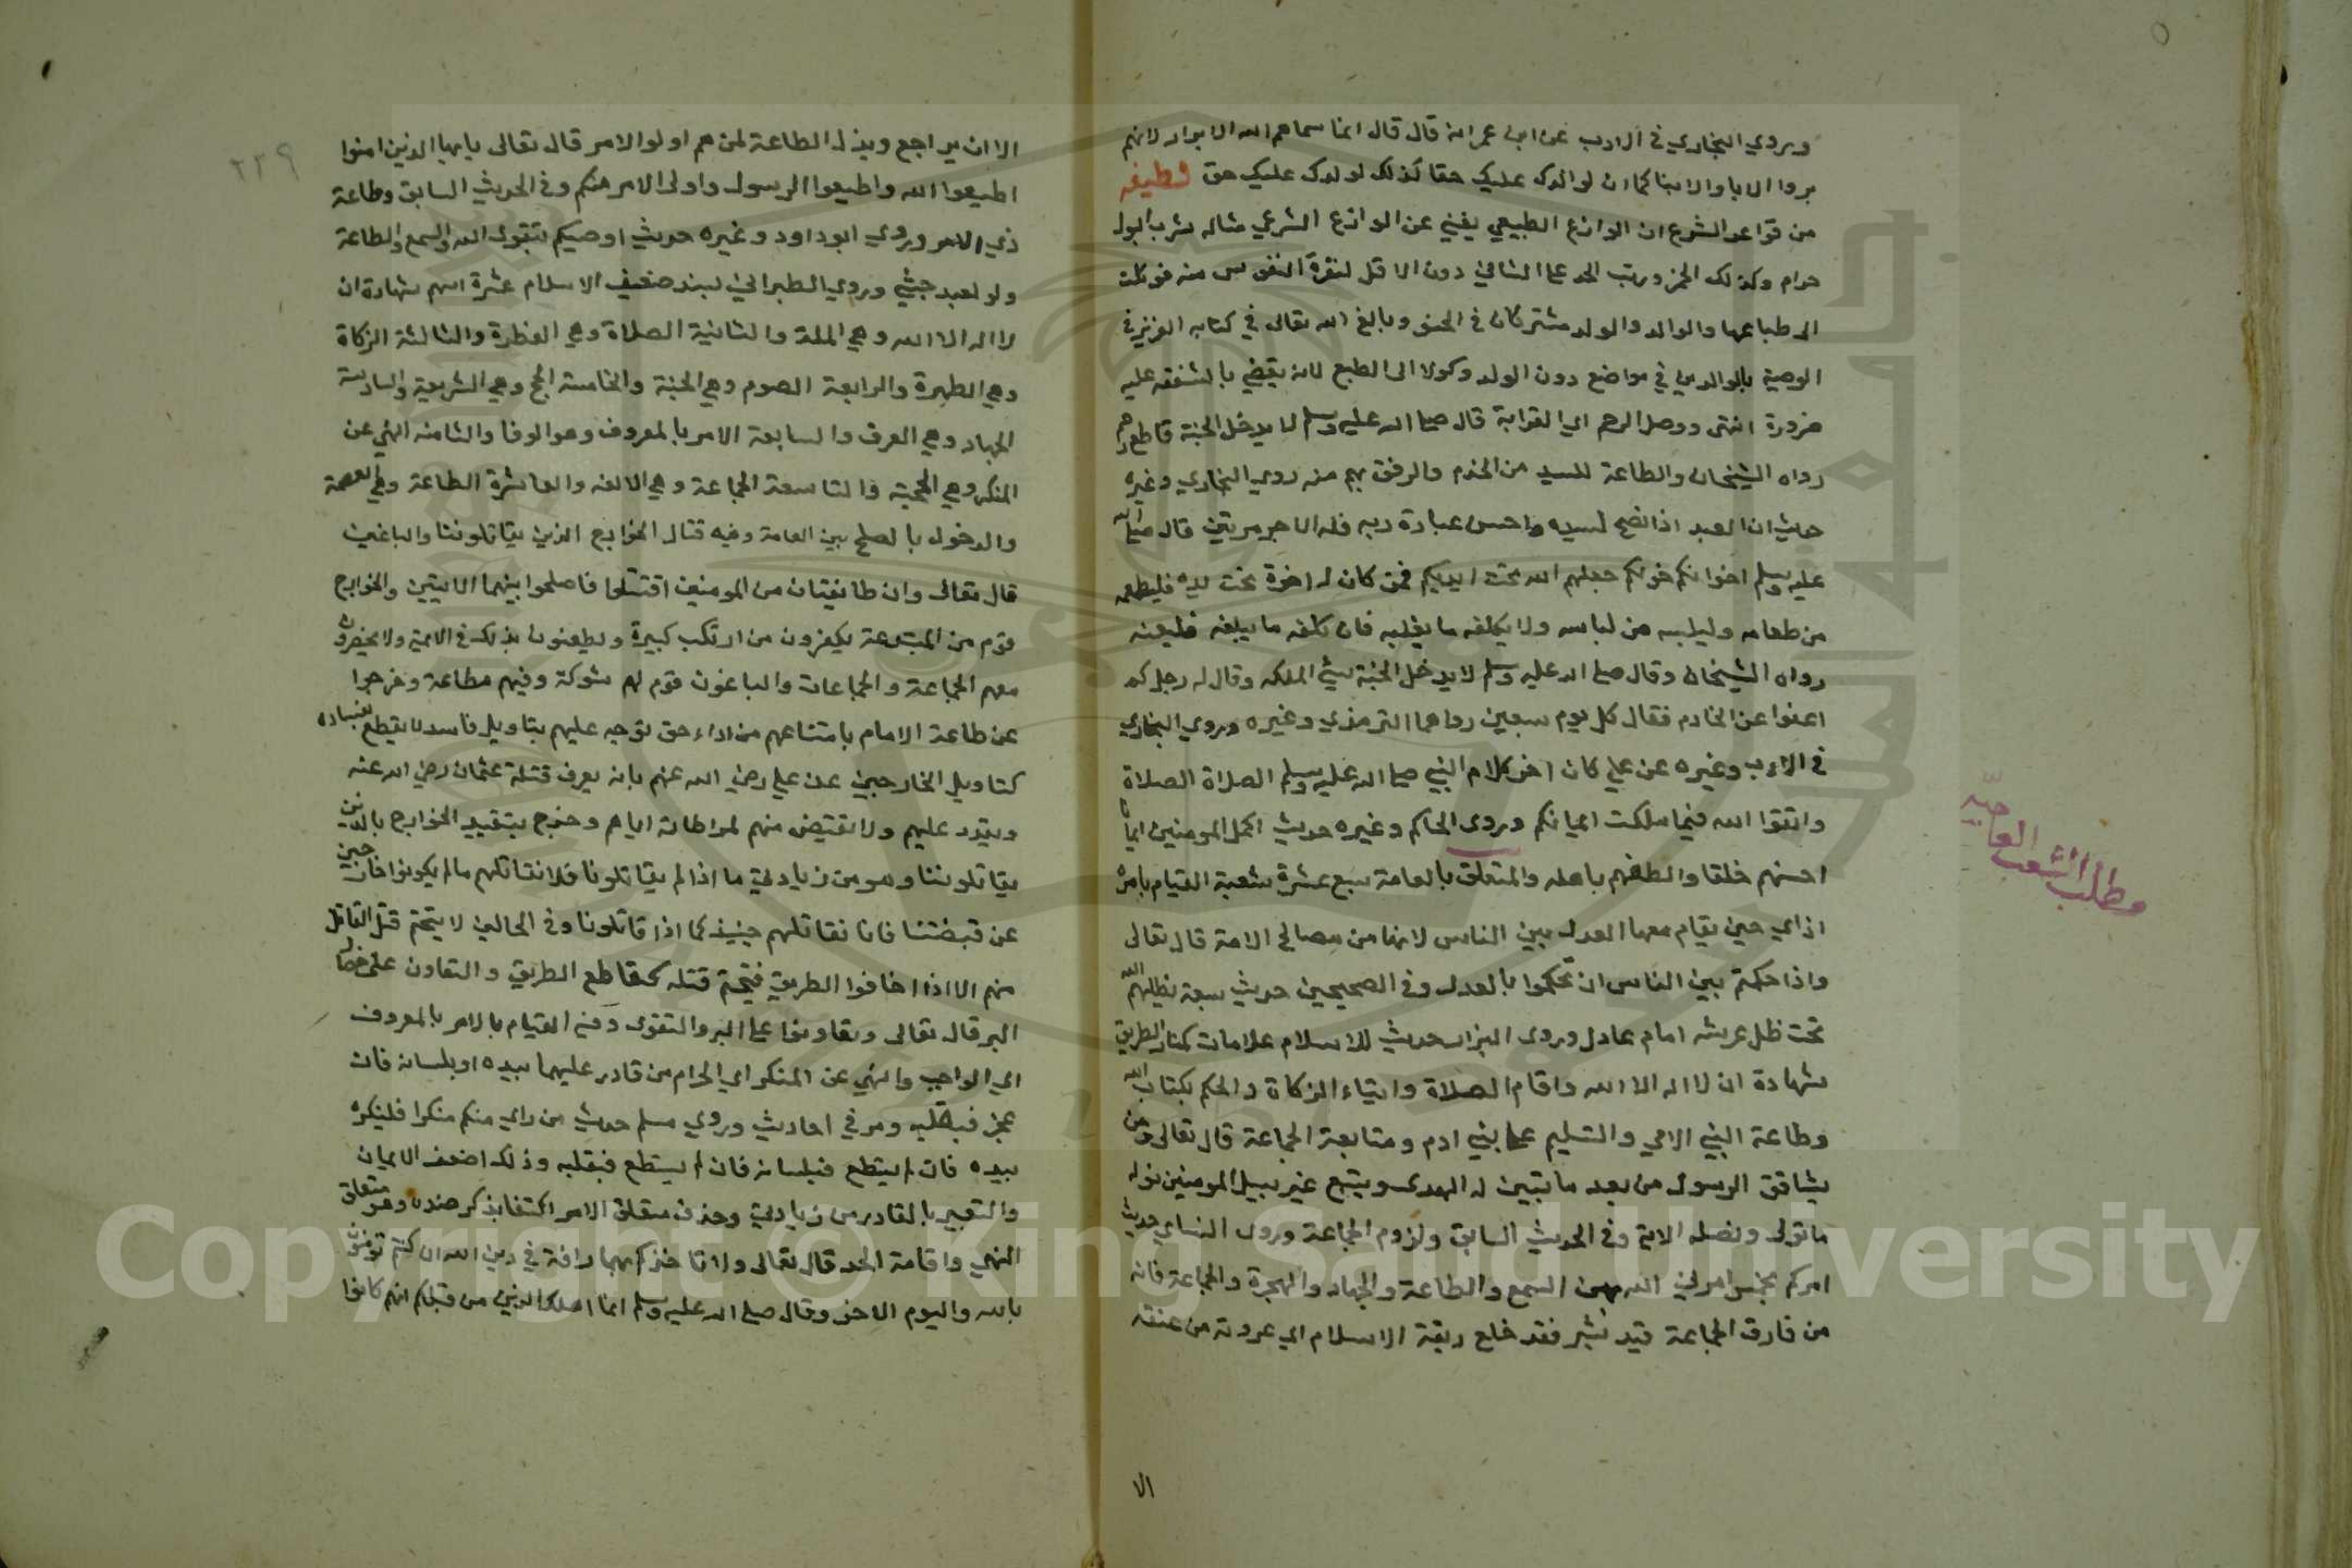 وروي البخاري في الادب عن ابن عمر انه قال قال انما سماهم الله الابرار لانهم
بروا الابا والابنا كما ان لوالدك عليك حقا كذلك لولدك عليك حق لطيفه
من قواعد الشرع ان الوازع الطبيعي يغني عن الوازع الشرعي مثاله شرب البول
حرام وكذلك الخمر ورتب الحد على الثاني دون الاول لنفرة النفوس منه فوكلت
الى طباعها والوالد والولد مشتركان في الحق وبالغ الله تعالى في كتابه العزيز في
الوصية بالوالدين في مواضع دون الولد وكولا الى الطبع لانه يقضي بالشفقه عليه
ضرورة انتهى ووصل الرحم اي القرابة قال صلى الله عليه وسلم لا يدخل الجنة قاطع رحم
رواه الشيخان والطاعة للسيد من الخدم والرفق بهم منه روي البخاري وغيره
حديث ان العبد اذا نصح لسيده واحسن عبادة ربه فله الاجر مرتين قال صلى الله
عليه وسلم اخوانكم خولكم جعلهم الله تحت ايديكم فمن كان له اخوة تحت يديه فليطعمه
من طعامه وليلبسه من لباسه ولا يكلفه ما يغلبه فان كلفه ما يغلبه فليعنه
رواه الشيخان وقال صلى الله عليه وسلم لا يدخل الجنة سيئ الملكه وقال له رجل كم
اعفوا عن الخادم فقال كل يوم سبعين رواهما الترمذي وغيره وروي البخاري
في الادب وغيره عن علي كان اخر كلام النبي صلى الله عليه وسلم الصلاة الصلاة
واتقوا الله فيما ملكت ايمانكم وروى الحاكم وغيره حديث اكمل المومنين ايمانا
احسنهم خلقا والطفهم باهله والمتعلق بالعامة سبع عشرة شعبة القيام بامره
اذ اي حين يقام معها العدل بين الناس لانها من مصالح الامة قال تعالى
واذا حكمتم بين الناس ان تحكموا بالعدل وفي الصحيحين حديث سبعة يظلهم الله
تحت ظل عرشه امام عادل وروى البزار حديث للاسلام علامات كمنار الطريق
شهادة ان لا اله الا الله واقام الصلاة وايتاء الزكاة والحكم بكتاب الله
وطاعة النبي الامي والتسليم على بني ادم ومتابعة الجماعة قال تعالى ومن
يشاقق الرسول من بعد ما تبين له الهدى ويتبع غير سبيل المومنين نوله
ما تولى ونصله الاية وفي الحديث السابق ولزوم الجماعة وروى النساي حديث
امركم بخمس امرني الله بهن السمع والطاعة والجهاد والهجرة والجماعة فانه
من فارق الجماعة قيد شبر فقد خلع ربقة الاسلام اي عروته من عنقه
الا
مطلب الشعب العاميه
٢٢٩
الا ان يراجع وبذل الطاعة لمن هم اولوا الامر قال تعالى يا يها الذين امنوا
اطيعوا الله واطيعوا الرسول واولى الامر منكم وفي الحديث السابق وطاعة
ذي الامر وروي ابو داود وغيره حديث اوصيكم بتقوى الله والسمع والطاعة
ولو لعبد حبشي وروي الطبراني بسند ضعيف الاسلام عشرة اسهم شهادة ان
لا اله الا الله وهي الملة والثانية الصلاة وهي الفطرة والثالثة الزكاة
وهي الطهرة والرابعة الصوم وهي الجنة والخامسة الحج وهي الشريعة والسادسة
الجهاد وهي العرف والسابعة الامر بالمعروف وهو الوفا والثامنة النهي عن
المنكر وهي الحجة والتاسعة الجماعة وهي الالفه والعاشرة الطاعة وهي العصمة
والدخول بالصلح بين العامة وفيه قتال الخوارج الذين يقاتلوننا والباغين
قال تعالى وان طايفتان من المومنين اقتتلوا فاصلحوا بينهما الايتين والخوارج
قوم من المبتدعة يكفرون من ارتكب كبيرة ويطعنون بذلك في الايمة ولا يحضرون
معهم الجماعة والجماعات والباغون قوم لهم شوكة وفيهم مطاعة وخرجوا
عن طاعة الامام بامتناعهم من اداء حق توجه عليهم بتاويل فاسد لا يقطع بفساده
كتاويل الخارجين عن علي رضي الله عنهم بانه يعرف قتلة عثمان رضي الله عنه
ويقدر عليهم ولا يقتص منهم لمواطاته اياهم وخرج بتقييد الخوارج بالذين
يقاتلوننا وهو من زيادتي ما اذا لم يقاتلونا فلا نقاتلهم ما لم يكونوا خارجين
عن قبضتنا فانا نقاتلهم حينيذ كما اذا قاتلونا وفي الحالين لا يتحتم قتل القاتل
منهم الا اذا اخافوا الطريق فيتحتم قتله كقاطع الطريق والتعاون على خصال
البر قال تعالى وتعاونوا على البر والتقوى ومنه القيام بالامر بالمعروف
اي الواجب والنهي عن المنكر اي الحرام من قادر عليهما بيده او بلسانه فان
عجز فبقلبه ومر في احاديث وروي مسلم حديث من راي منكم منكرا فلينكره
بيده فان لم يستطع فبلسانه فان لم يستطع فبقلبه وذلك اضعف الايمان
والتعبير بالقادر من زيادتي وحذف متعلق الامر اكتفا بذكر ضده وهو متعلق
النهي واقامة الحد قال تعالى ولا تاخذكم بهما رافة في دين الله ان كنتم تومنون
بالله واليوم الاخر وقال صلى الله عليه وسلم انما اهلك الذين من قبلكم انهم كانوا
Copyright © King Saud University